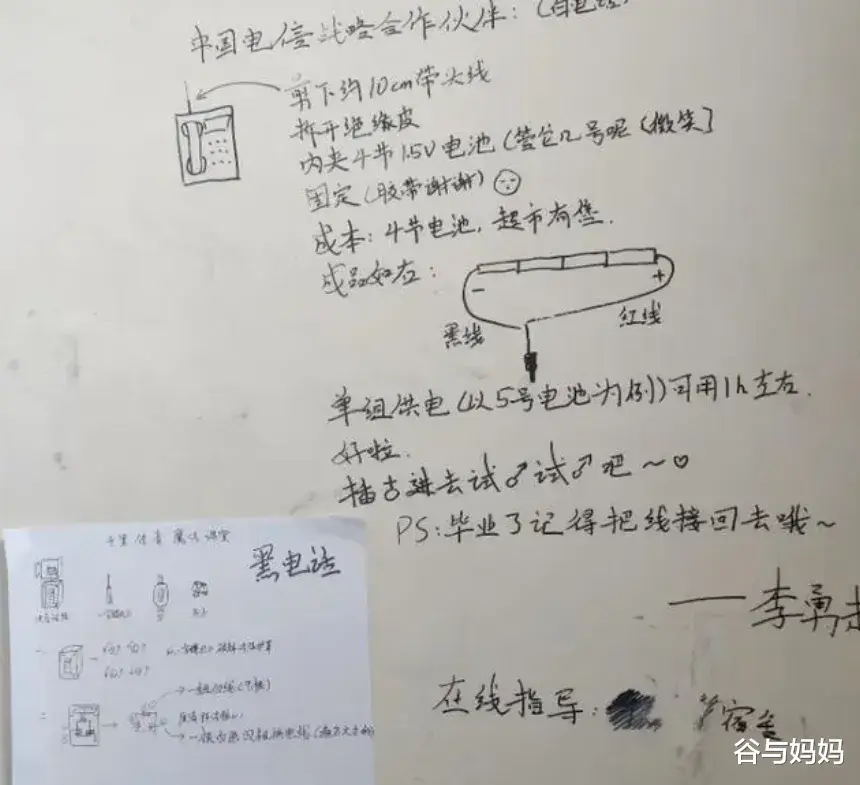 中国电信战略合作伙伴：（白电话）
剪下约10cm带头线
拆开绝缘皮
内夹4节1.5V电池（管它几号呢（微笑］
固定（胶带谢谢）
成本：4节电池，超市有售.
成品如右：
－ ＋
黑线 红线
单组供电（以5号电池为例）可用1h左右.
好啦.
插古进去试♂试♂吧～♡
PS：毕业了记得把线接回去哦～
——李勇
在线指导： 宿舍
千里传音魔法课堂
黑电话
一
二
谷与妈妈